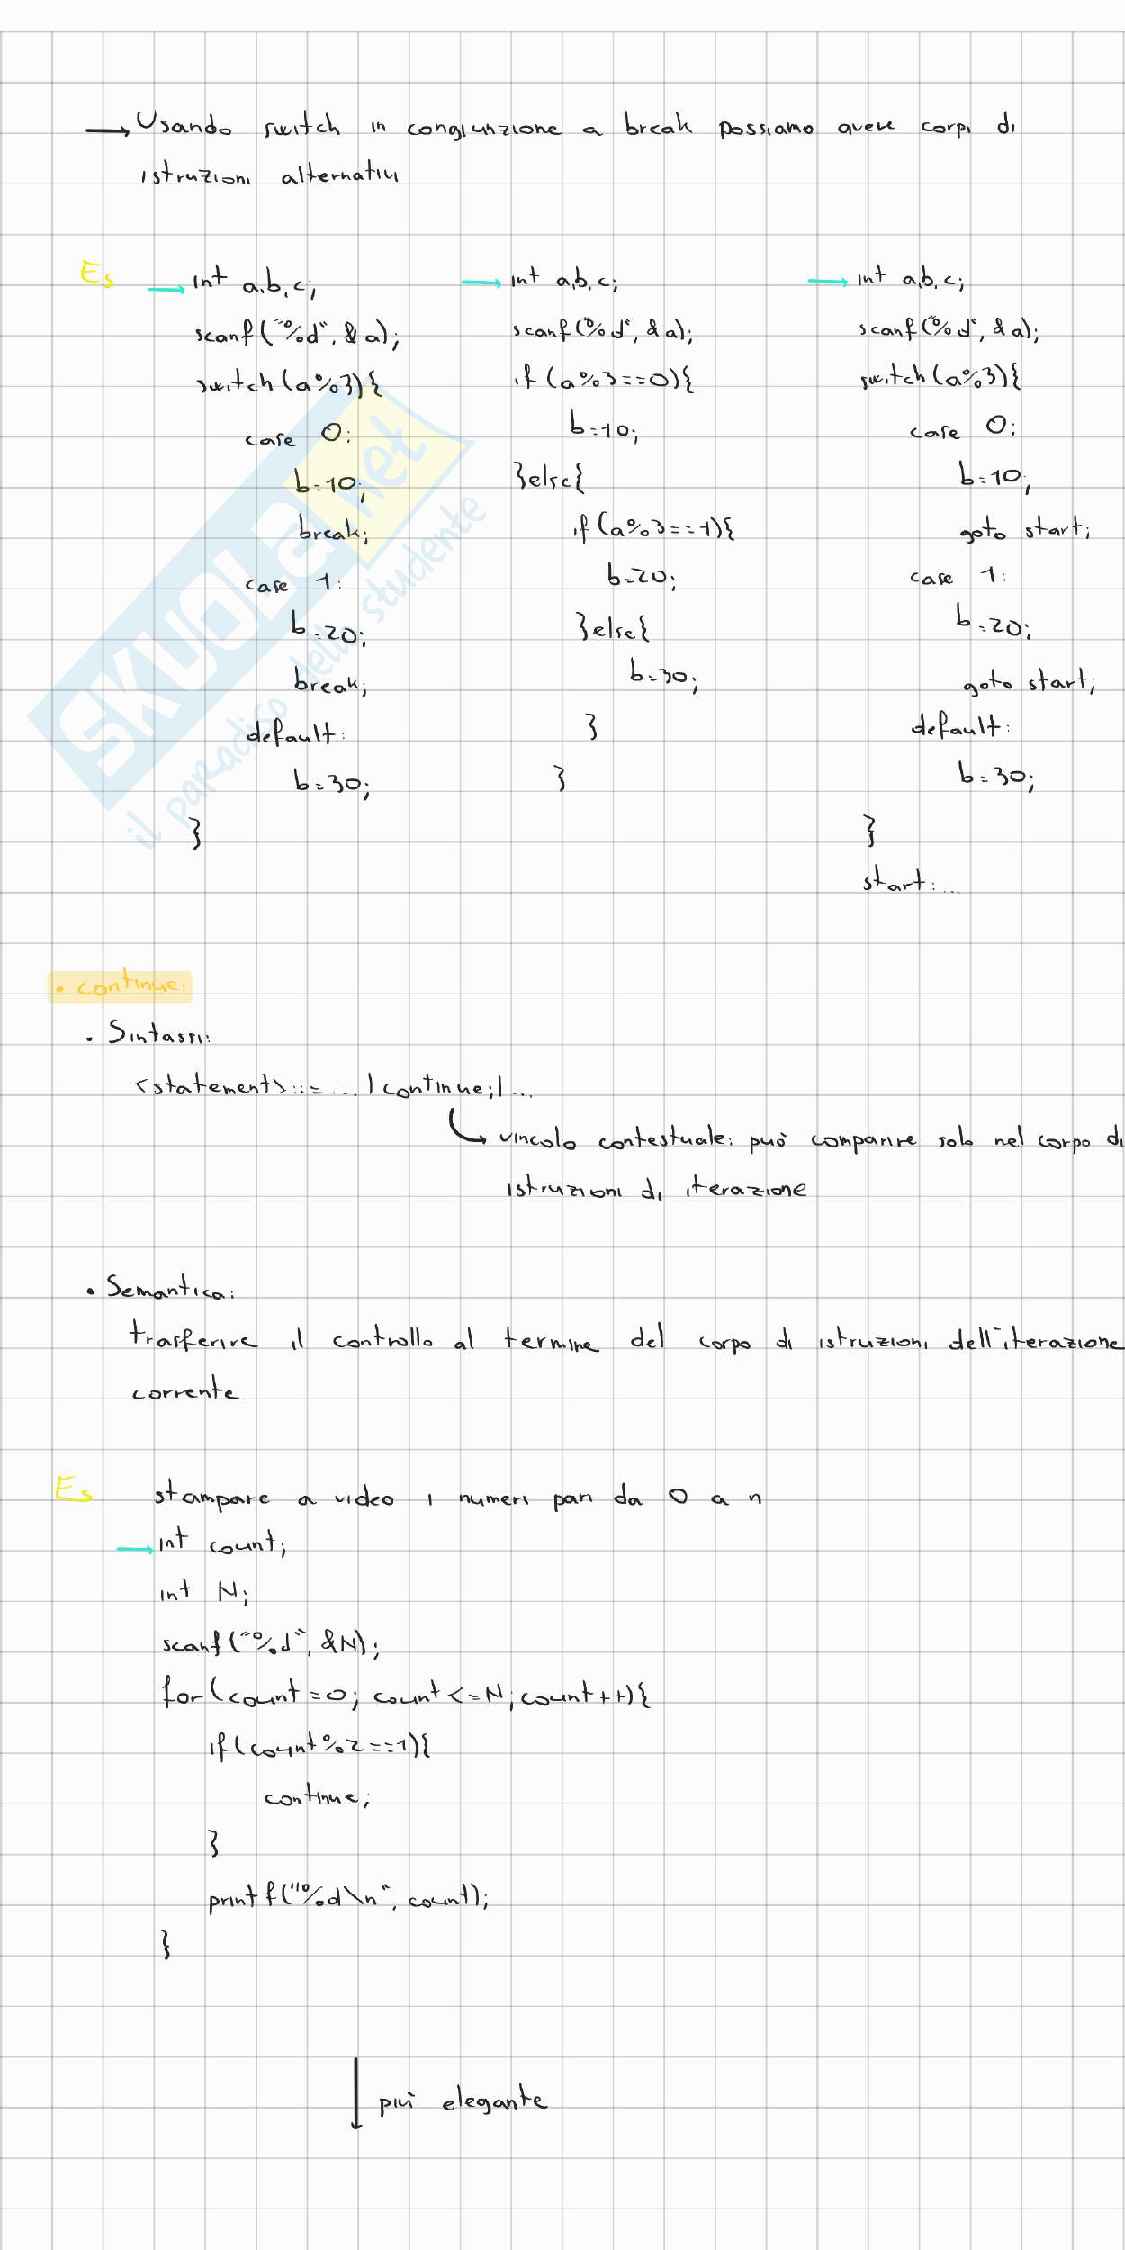 → Usando switch in congiunzione a break possiamo avere corpi di
istruzioni alternativi
Es
→ int a,b,c;
scanf("%d", &a);
switch(a%3){
case 0:
b=10;
break;
case 1:
b=20;
break;
default:
b=30;
}
→ int a,b,c;
scanf("%d", &a);
if (a%3==0){
b=10;
}else{
if(a%3==1){
b=20;
}else{
b=30;
}
}
→ int a,b,c;
scanf("%d", &a);
switch(a%3){
case 0:
b=10;
goto start;
case 1:
b=20;
goto start;
default:
b=30;
}
start:...
SKUOLA.net
il paradiso dello studente
• continue:
• Sintassi:
<statement>::= ...|continue;|...
↳ vincolo contestuale: può comparire solo nel corpo di
istruzioni di iterazione
• Semantica:
trasferire il controllo al termine del corpo di istruzioni dell'iterazione
corrente
Es stampare a video i numeri pari da 0 a n
→ int count;
int N;
scanf("%d", &N);
for(count=0; count<=N; count++){
if(count%2==1){
continue;
}
printf("%d\n", count);
}
↓ più elegante